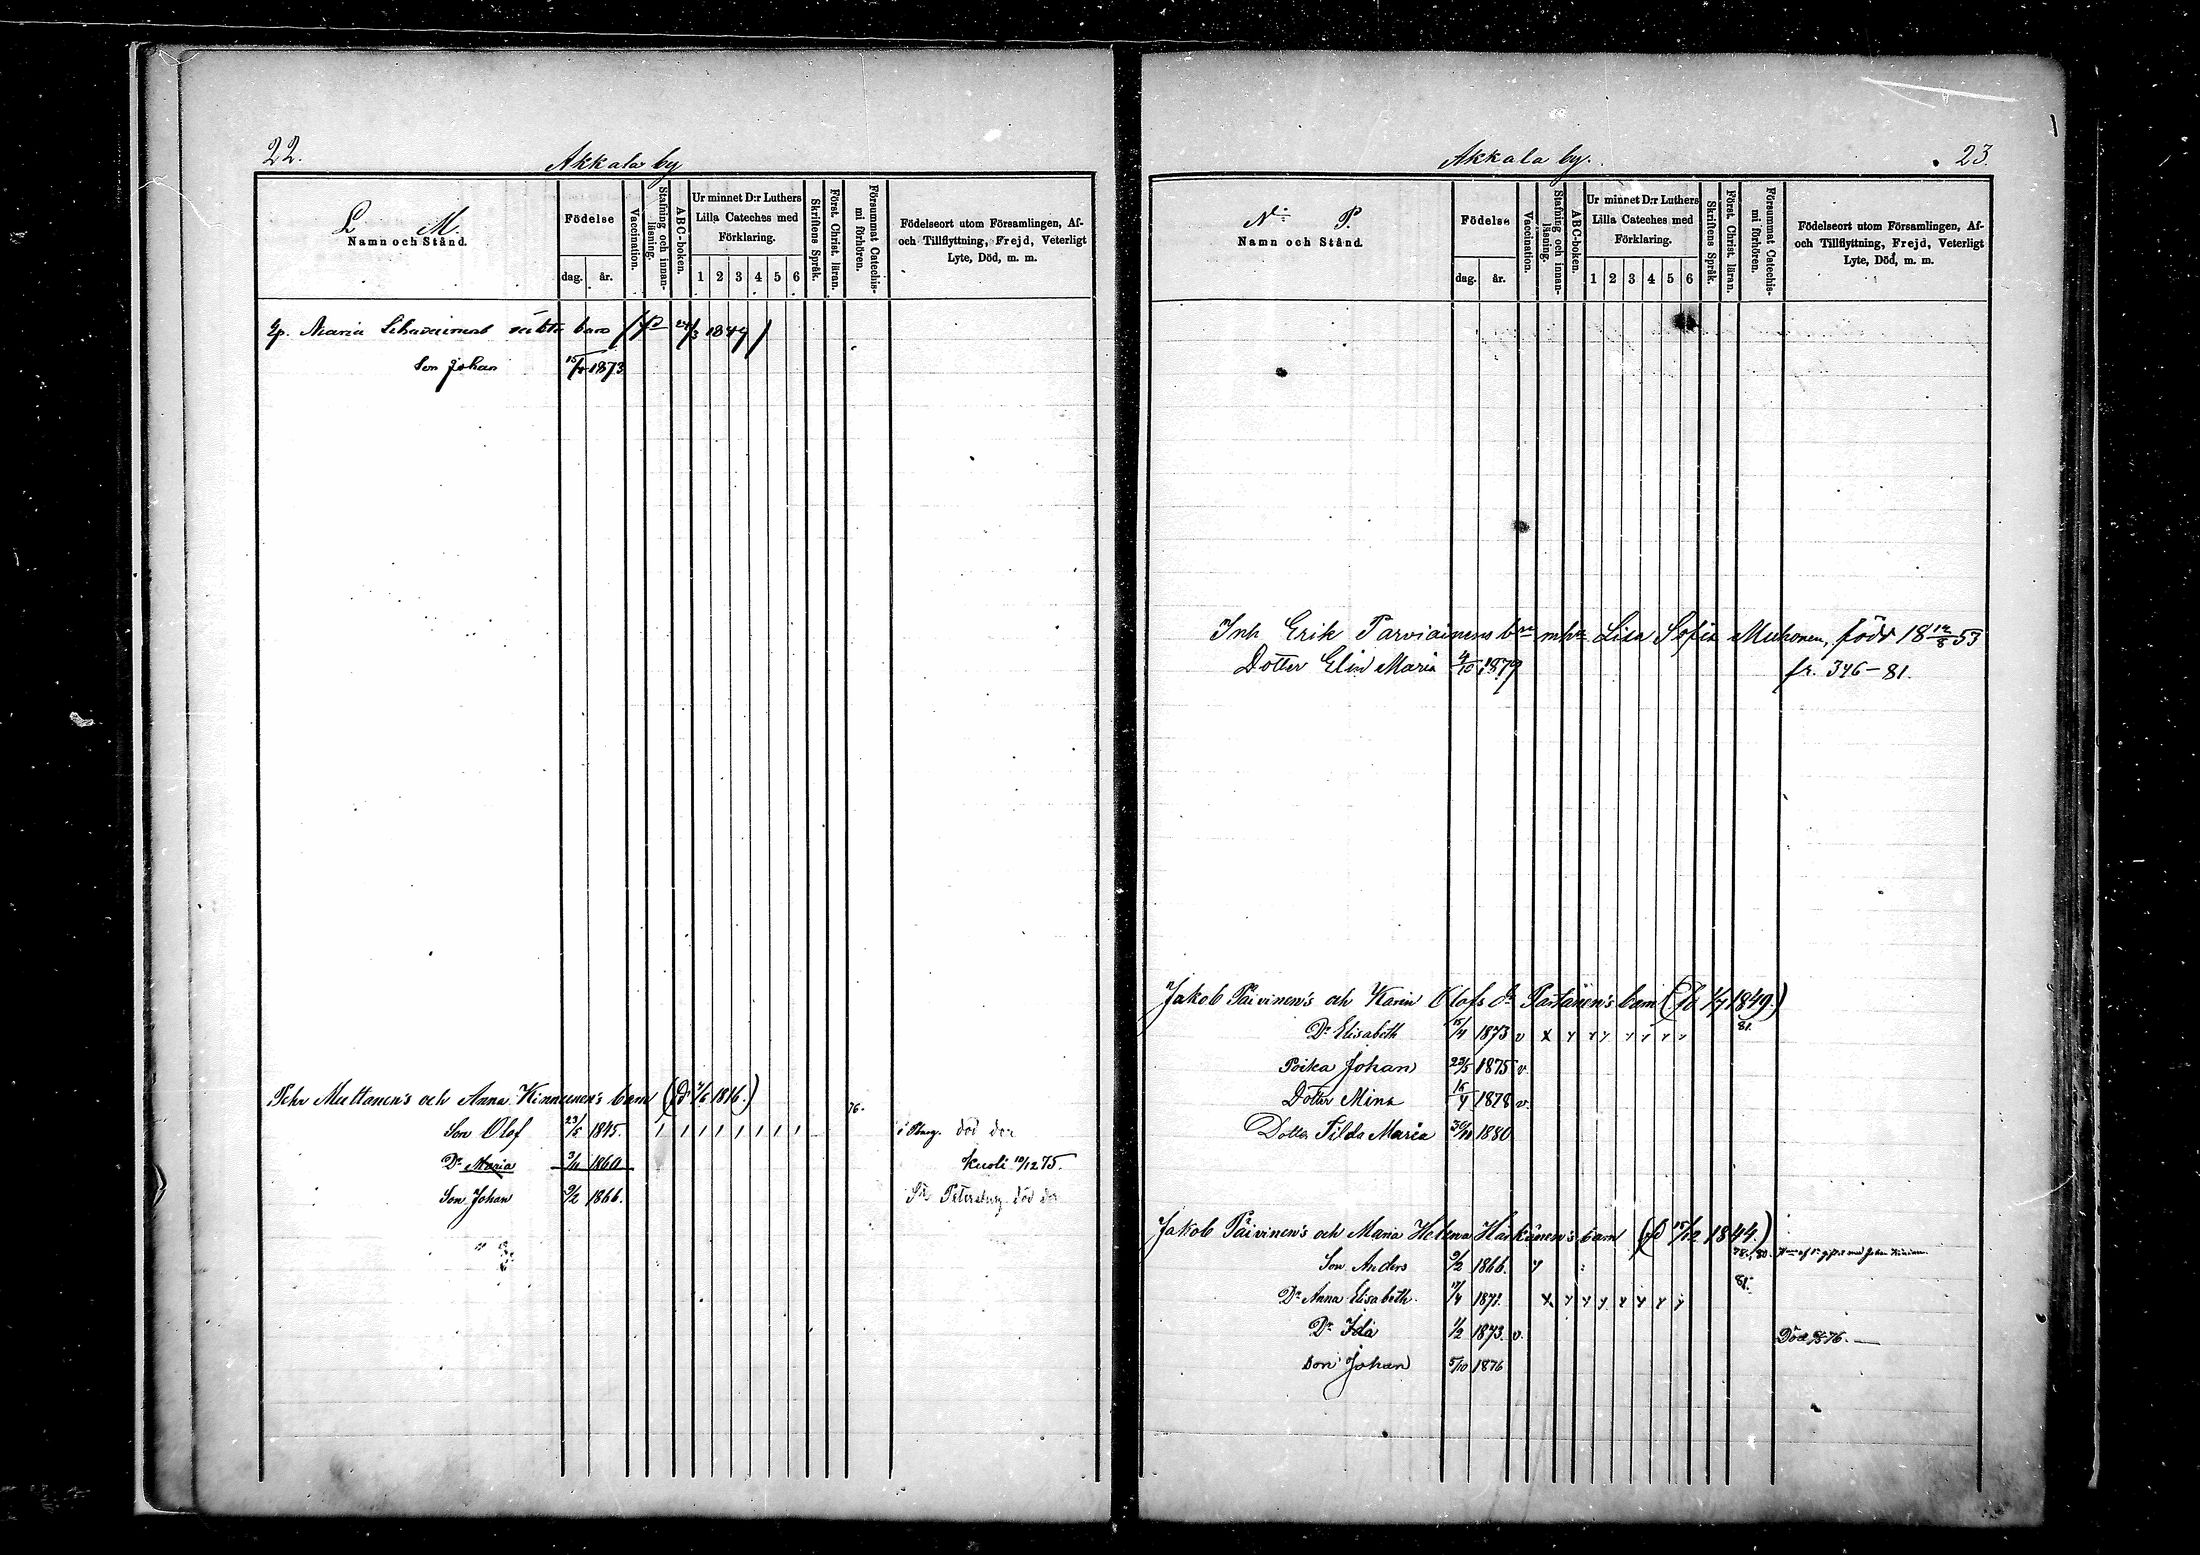 22.
Akkala by
L M.
Namn och Stånd.
Födelse
dag. år.
Vaccination.
Stafning och innan-
läsning.
ABC-boken.
Ur minnet D:r Luthers
Lilla Cateches med
Förklaring.
1 2 3 4 5 6
Skriftens Språk.
Först. Christ. läran.
Försummat Catechis-
mi förhören.
Födelseort utom Församlingen, Af-
och Tillflyttning, Frejd, Veterligt
Lyte, Död, m. m.
Maria barn 1849
Son Johan 1873
Pehr Multanen's och Anna Kinnunen's barn 1816.)
76.
Son Olof 23/5 1845. död der
Dr Maria 3/11 1860 kuoli 10/12 75.
Son Johan 9/2 1866. St Petersburg död der
Akkala by.
23
N P.
Namn och Stånd.
Födelse
dag. år.
Vaccination.
Stafning och innan-
läsning.
ABC-boken.
Ur minnet D:r Luthers
Lilla Cateches med
Förklaring.
1 2 3 4 5 6
Skriftens Språk.
Först. Christ. läran.
Försummat Catechis-
mi förhören.
Födelseort utom Församlingen, Af-
och Tillflyttning, Frejd, Veterligt
Lyte, Död, m. m.
Inh Erik Parviainens Lisa Sofia född 18 53
Dotter Elin Maria 4/10 1879 fr. 346-81.
Jakob Päivinen's och Karin Olofs dr Partanen's barn 1/7 1849.)
81.
Dr Elisabeth 15/4 1873 v
Poika Johan 23/5 1875 v.
Dotter Mina 1878 v.
Dotter Tilda Maria 1880
Jakob Päivinen's och Maria Helena barn 15/12 1844.)
78. 80.
Son Anders 9/2 1866.
81.
Dr Anna Elisabeth 17/4 1871.
Dr Ida 1/2 1873. v. Död 76.
Son Johan 5/10 1876